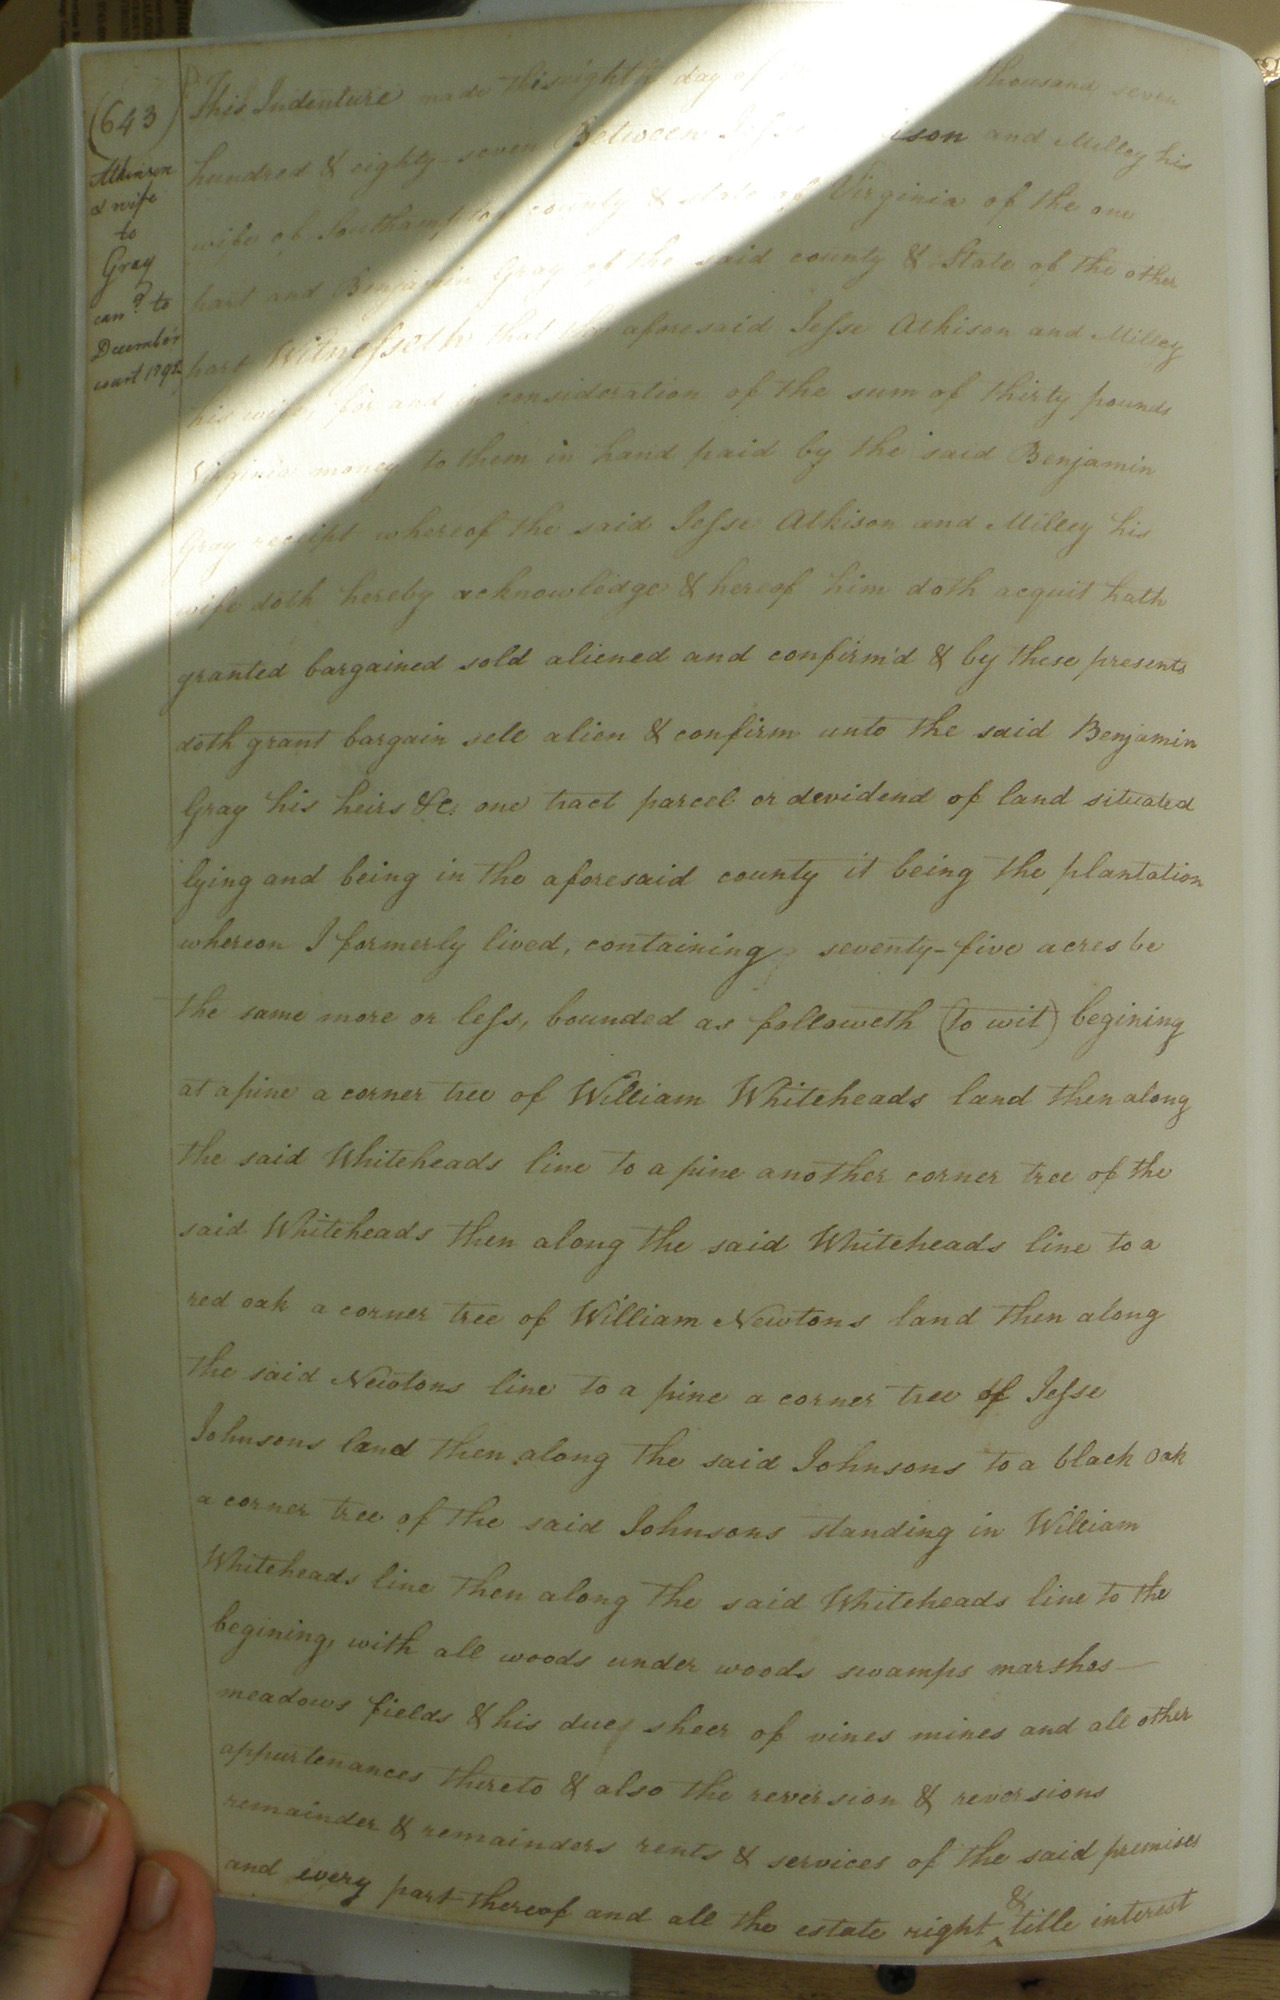 (643)
Atkinson
& wife
to
Gray
can.d to
December
court 1792
This Indenture made this eighth day of thousand seven
hundred & eighty-seven Between Jesse ison and Milley his
wife of Southampton county & state of Virginia of the one
part and Benjamin Gray of the said county & State of the other
part Witnesseth that the aforesaid Jesse Atkison and Milley
his wife for and in consideration of the sum of thirty pounds
Virginia money to them in hand paid by the said Benjamin
Gray receipt whereof the said Jesse Atkison and Milley his
wife doth hereby acknowledge & hereof him doth acquit hath
granted bargained sold aliened and confirm'd & by these presents
doth grant bargain sell alien & confirm unto the said Benjamin
Gray his heirs &c. one tract parcel or devidend of land situated
lying and being in the aforesaid county it being the plantation
whereon I formerly lived, containing seventy-five acres be
the same more or less, bounded as followeth (to wit) begining
at a pine a corner tree of William Whiteheads land then along
the said Whiteheads line to a pine another corner tree of the
said Whiteheads then along the said Whiteheads line to a
red oak a corner tree of William Newtons land then along
the said Newtons line to a pine a corner tree of Jesse
Johnsons land then along the said Johnsons to a black oak
a corner tree of the said Johnsons standing in William
Whiteheads line then along the said Whiteheads line to the
begining, with all woods under woods swamps marshes—
meadows fields & his due sheer of vines mines and all other
appurtenances thereto & also the reversion & reversions
remainder & remainders rents & services of the said premises
and every part thereof and all the estate right & title interest